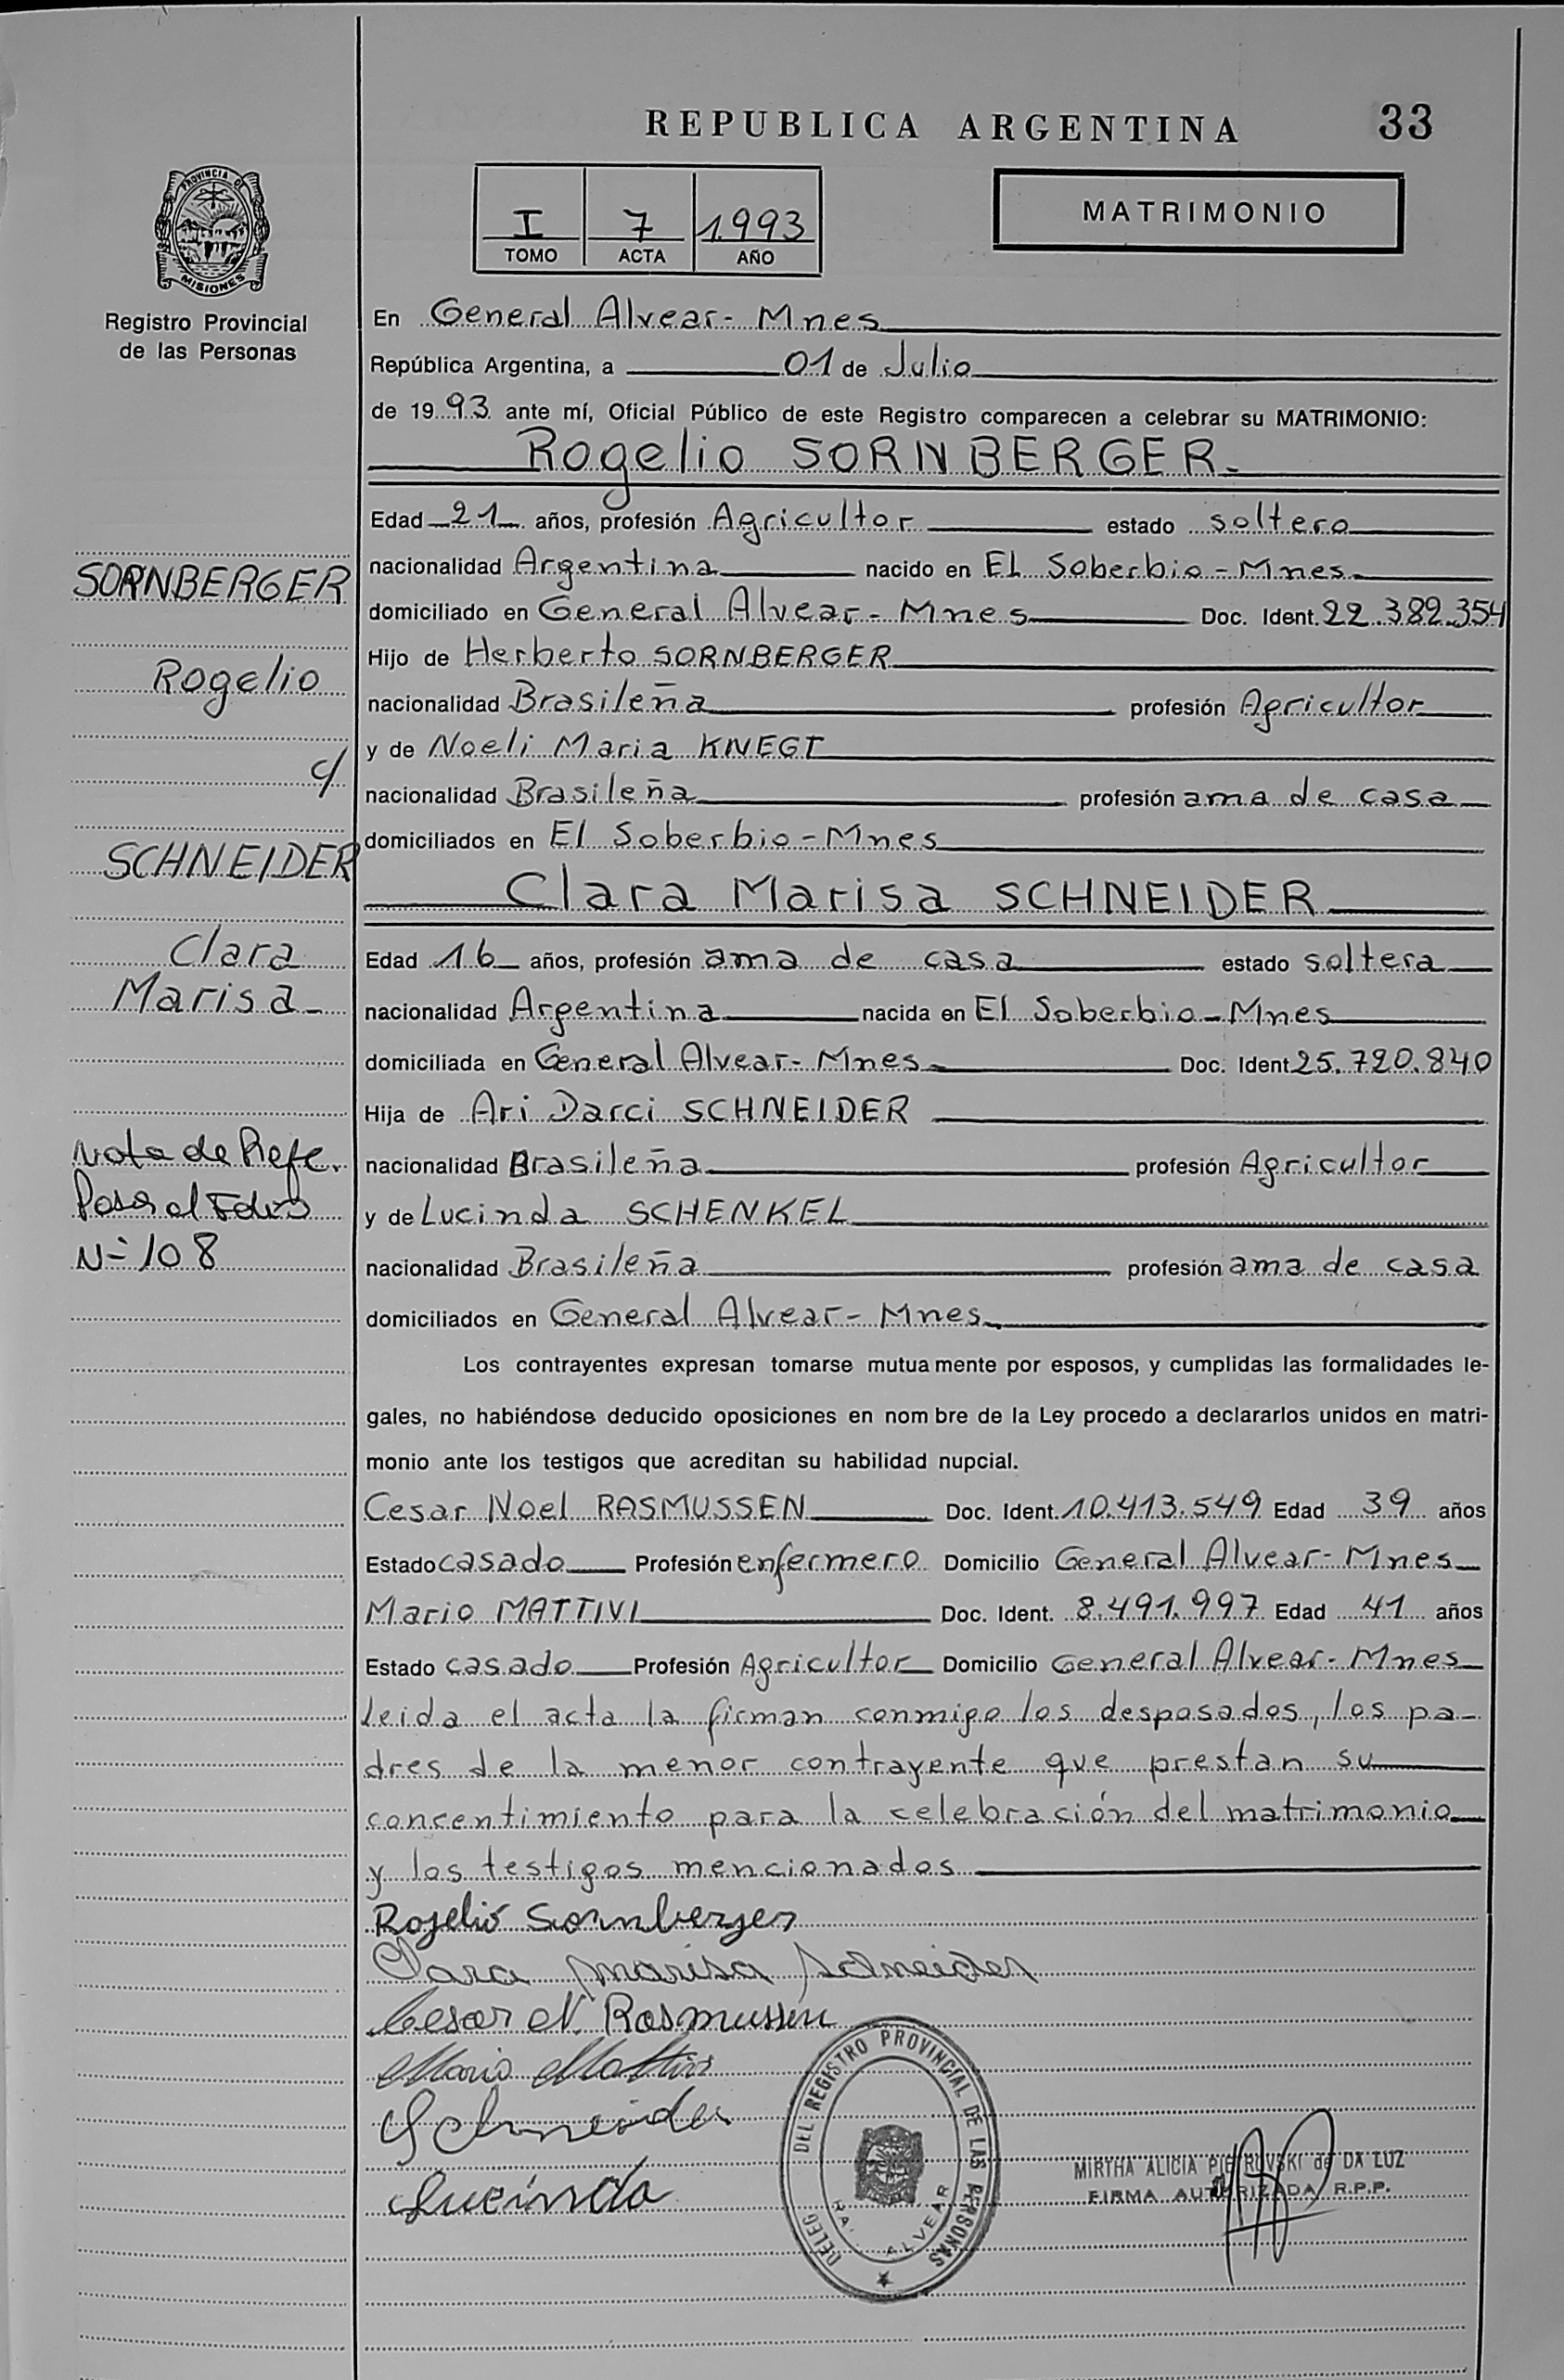 REPUBLICA ARGENTINA 33
PROVINCIA DE MISIONES
Registro Provincial
de las Personas
I 7 1.993
TOMO ACTA AÑO
MATRIMONIO
En General Alvear- Mnes
República Argentina, a 01 de Julio
de 1993 ante mí, Oficial Público de este Registro comparecen a celebrar su MATRIMONIO:
Rogelio SORNBERGER.
Edad 21 años, profesión Agricultor estado soltero
nacionalidad Argentina nacido en EL Soberbio - Mnes
domiciliado en General Alvear - Mnes Doc. Ident. 22.382.354
Hijo de Herberto SORNBERGER
nacionalidad Brasileña profesión Agricultor
y de Noeli Maria KNEGT
nacionalidad Brasileña profesión ama de casa
domiciliados en El Soberbio - Mnes
Clara Marisa SCHNEIDER
Edad 16 años, profesión ama de casa estado soltera
nacionalidad Argentina nacida en El Soberbio - Mnes
domiciliada en General Alvear - Mnes Doc. Ident. 25.720.840
Hija de Ari Darci SCHNEIDER
nacionalidad Brasileña profesión Agricultor
y de Lucinda SCHENKEL
nacionalidad Brasileña profesión ama de casa
domiciliados en General Alvear - Mnes
Los contrayentes expresan tomarse mutuamente por esposos, y cumplidas las formalidades le-
gales, no habiéndose deducido oposiciones en nombre de la Ley procedo a declararlos unidos en matri-
monio ante los testigos que acreditan su habilidad nupcial.
Cesar Noel RASMUSSEN Doc. Ident. 10.413.549 Edad 39 años
Estado casado Profesión enfermero Domicilio General Alvear - Mnes
Mario MATTIVI Doc. Ident. 8.491.997 Edad 41 años
Estado casado Profesión Agricultor Domicilio General Alvear - Mnes
leida el acta la firman conmigo los desposados, los pa-
dres de la menor contrayente que prestan su
concentimiento para la celebración del matrimonio
y los testigos mencionados
Rogelio Sornberger
Clara Marisa Schneider
Cesar N. Rasmussen
Mario Mattivi
Schneider
Lucinda
DELEG. DEL REGISTRO PROVINCIAL DE LAS PERSONAS
ALVEAR
MIRTHA ALICIA PIETROVSKI de DA LUZ
FIRMA AUTORIZADA R.P.P.
SORNBERGER
Rogelio
c/
SCHNEIDER
Clara
Marisa
Nota de Refe.
Pasa al Folio
Nº 108